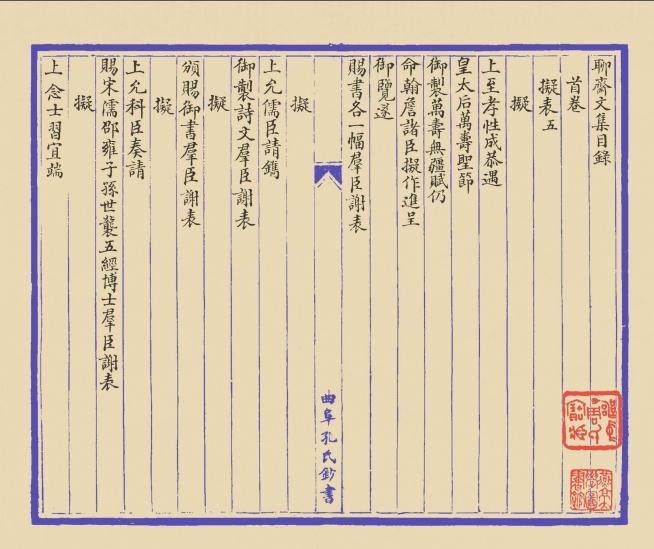 聊齋文集目錄
首卷
擬表五
擬
上至孝性成恭遇
皇太后萬壽聖節
御製萬壽無疆賦仍
命翰詹諸臣擬作進呈
御覽遂
賜書各一幅羣臣謝表
曲阜孔氏鈔書
擬
上允儒臣請鐫
御製詩文羣臣謝表
擬
頒賜御書羣臣謝表
擬
上允科臣奏請
賜宋儒邵雍子孫世襲五經博士羣臣謝表
擬
上念士習宜端